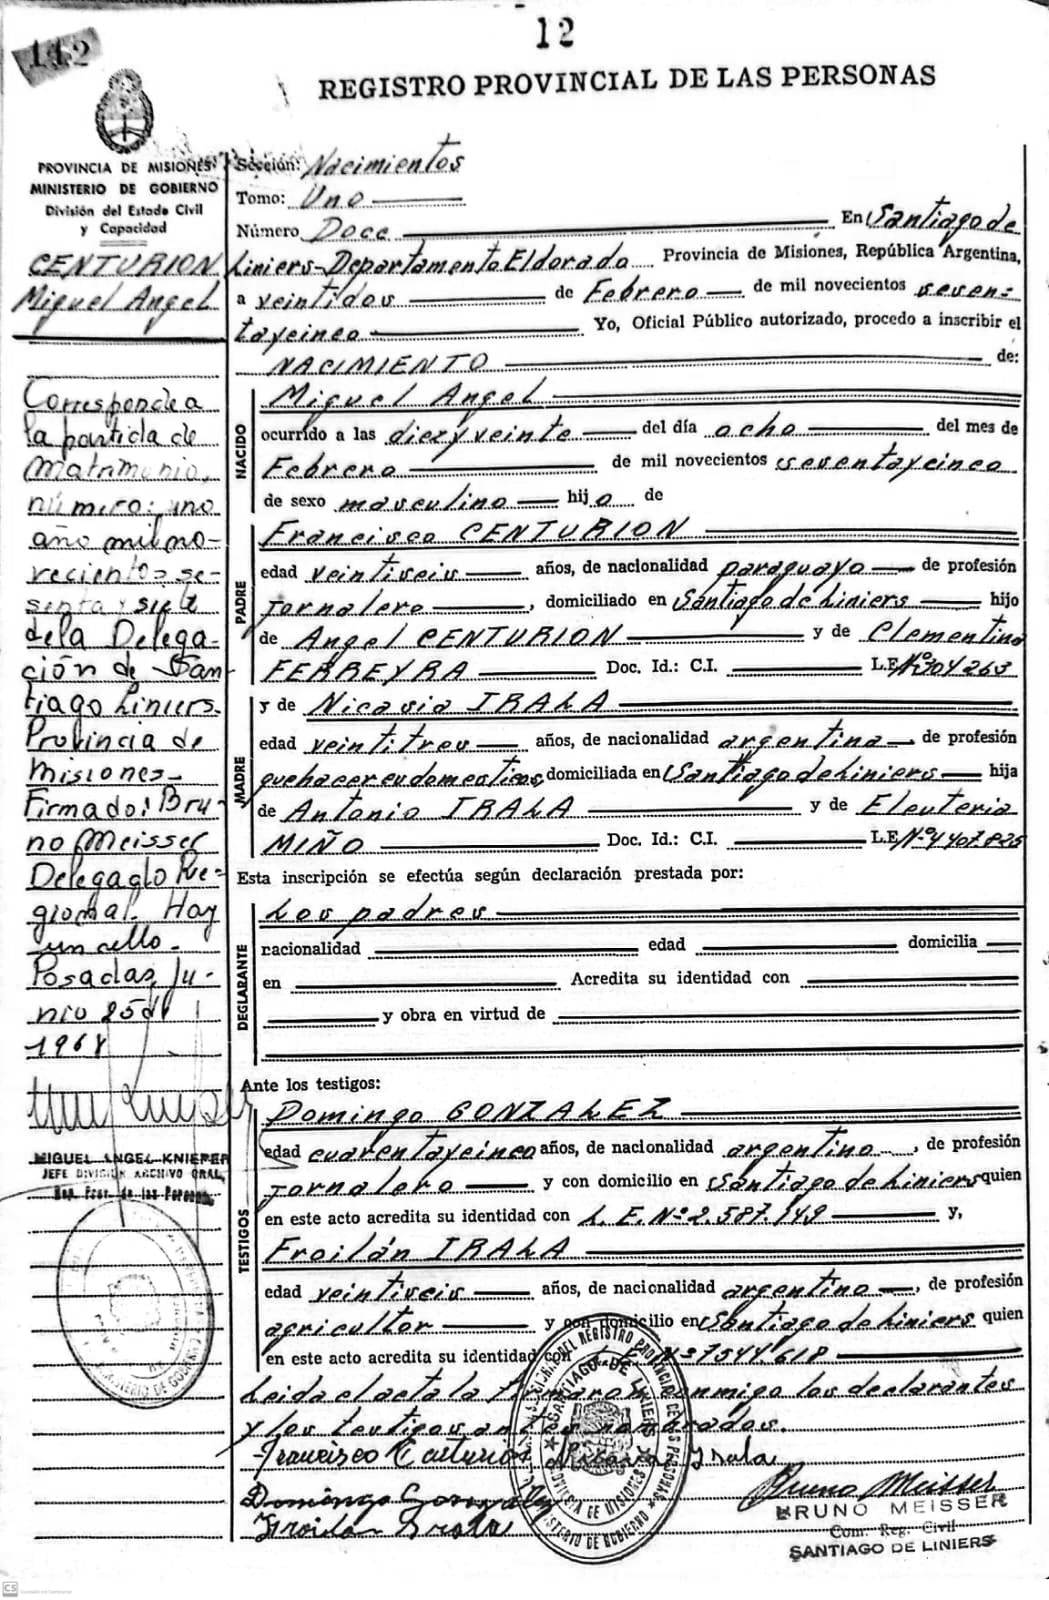 12
112
REGISTRO PROVINCIAL DE LAS PERSONAS
PROVINCIA DE MISIONES
MINISTERIO DE GOBIERNO
División del Estado Civil
y Capacidad
CENTURION
Miguel Angel
Corresponde a
la partida de
Matrimonio,
número: uno
año mil no-
vecientos se-
senta y siete
de la Delega-
ción de San
tiago Liniers.
Provincia de
Misiones-
Firmado: Bru
no Meisser
Delegado Re-
gional. Hay
un sello.
Posadas, Ju-
nio 25 de
1968
MIGUEL ANGEL KNIEPER
JEFE DIVISION ARCHIVO GRAL.
Reg. Prov. de las Personas
Sección: Nacimientos
Tomo: Uno
Número Doce En Santiago de
Liniers-Departamento Eldorado Provincia de Misiones, República Argentina,
a veintidos de Febrero de mil novecientos sesen-
taycinco Yo, Oficial Público autorizado, procedo a inscribir el
NACIMIENTO de:
NACIDO
Miguel Angel
ocurrido a las diez y veinte del día ocho del mes de
Febrero de mil novecientos sesentaycinco
de sexo masculino hijo de
PADRE
Francisco CENTURION
edad veintiseis años, de nacionalidad paraguayo de profesión
Jornalero, domiciliado en Santiago de Liniers hijo
de Angel CENTURION y de Clementina
FERREYRA Doc. Id.: C.I. L.E. Nº304263
MADRE
y de Nicasia IRALA
edad veintitres años, de nacionalidad argentina de profesión
quehaceres domesticos, domiciliada en Santiago de Liniers hija
de Antonio IRALA y de Eleuteria
MIÑO Doc. Id.: C.I. L.E. Nº4407.825
Esta inscripción se efectúa según declaración prestada por:
DECLARANTE
Los padres
nacionalidad edad domicilia
en Acredita su identidad con
y obra en virtud de
Ante los testigos:
TESTIGOS
Domingo GONZALEZ
edad cuarentaycinco años, de nacionalidad argentino, de profesión
Jornalero y con domicilio en Santiago de Liniers quien
en este acto acredita su identidad con L.E.Nº2.587.149 y,
Froilán IRALA
edad veintiseis años, de nacionalidad argentino, de profesión
agricultor y con domicilio en Santiago de Liniers quien
en este acto acredita su identidad con Nº7544.618
Leida el acta la firmaron conmigo los declarantes
y los testigos antes nombrados.
Francisco Centurion Nicasia Irala
Domingo Gonzalez
Froilan Irala
Bruno Meisser
BRUNO MEISSER
Com. Reg. Civil
SANTIAGO DE LINIERS
SANTIAGO DE LINIERS
PROVINCIA DE MISIONES
MINISTERIO DE GOBIERNO
CS